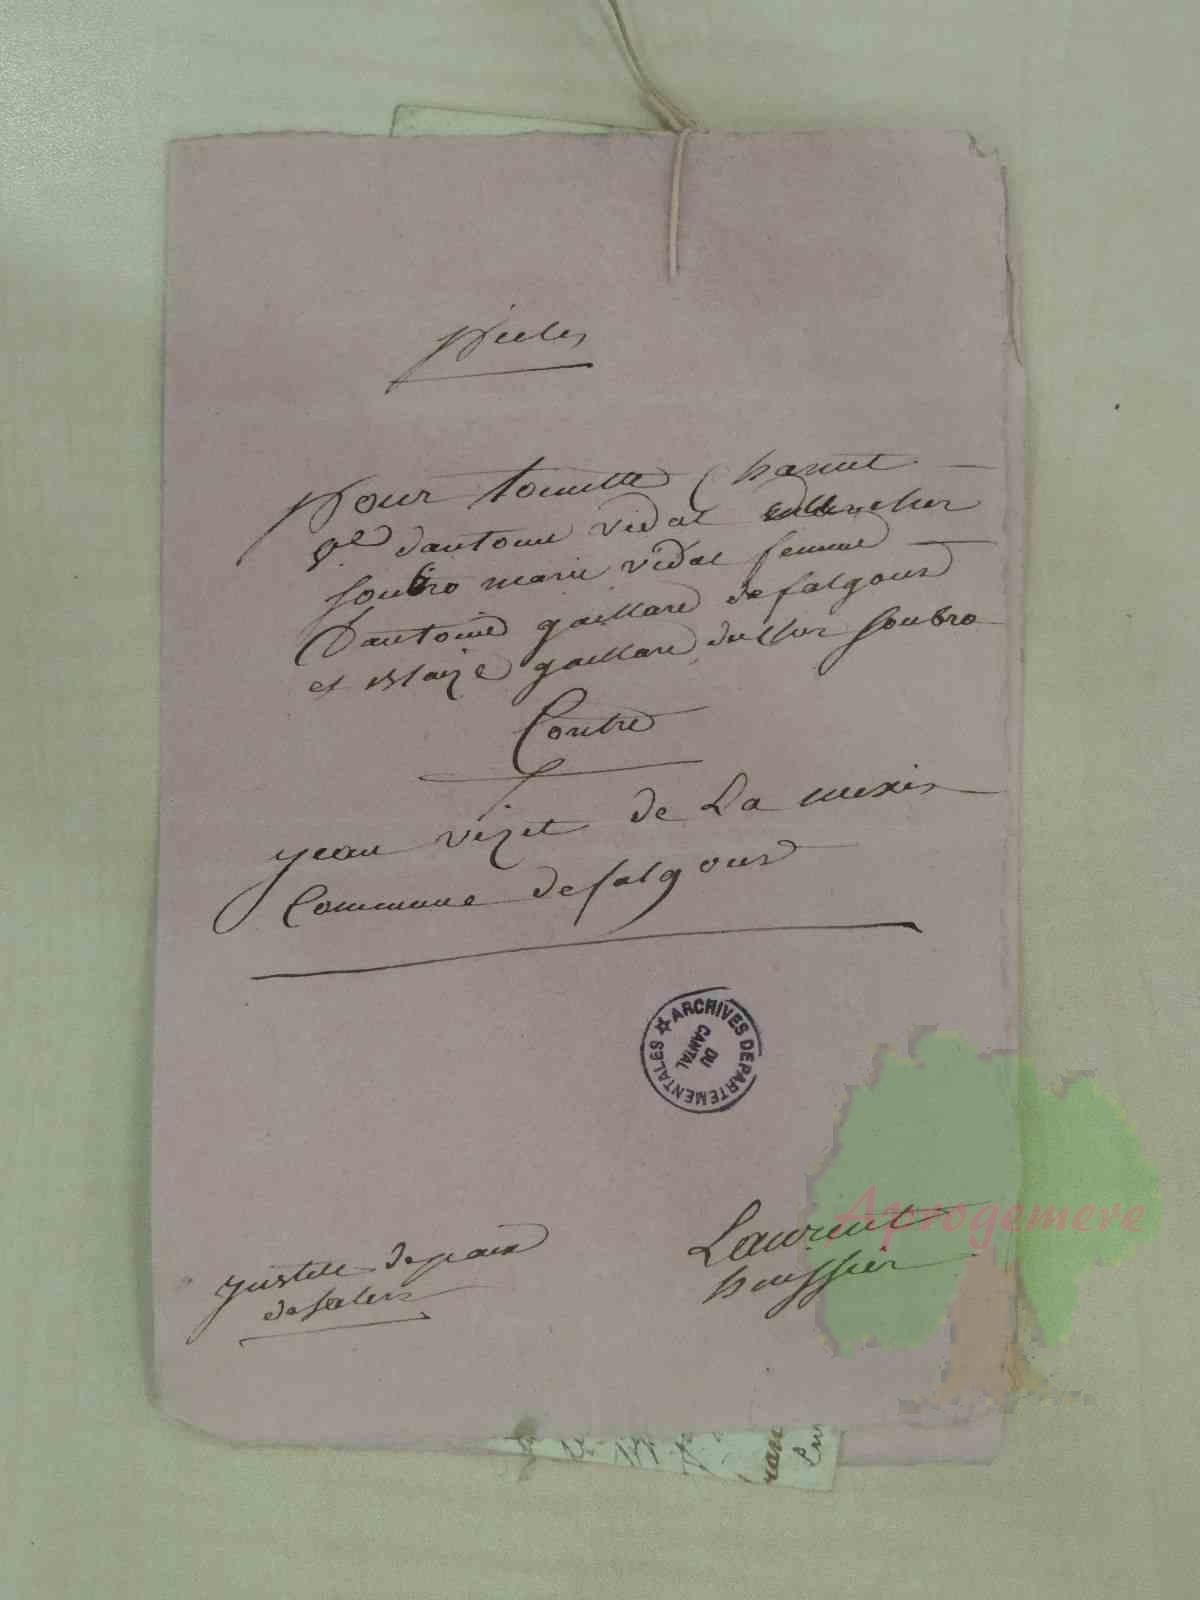 Pieces
Pour toinette Chanut
ve d'antoine vidal
soubro marie vidal femme
D'antoine gaillard de falgoux
et Blaize gaillard du cher soubro
Contre
jean vizet de La
Commune de falgoux
ARCHIVES DEPARTEMENTALES
DU
CANTAL
Aprogemere
justice de paix
de salers
Laurent
huissier